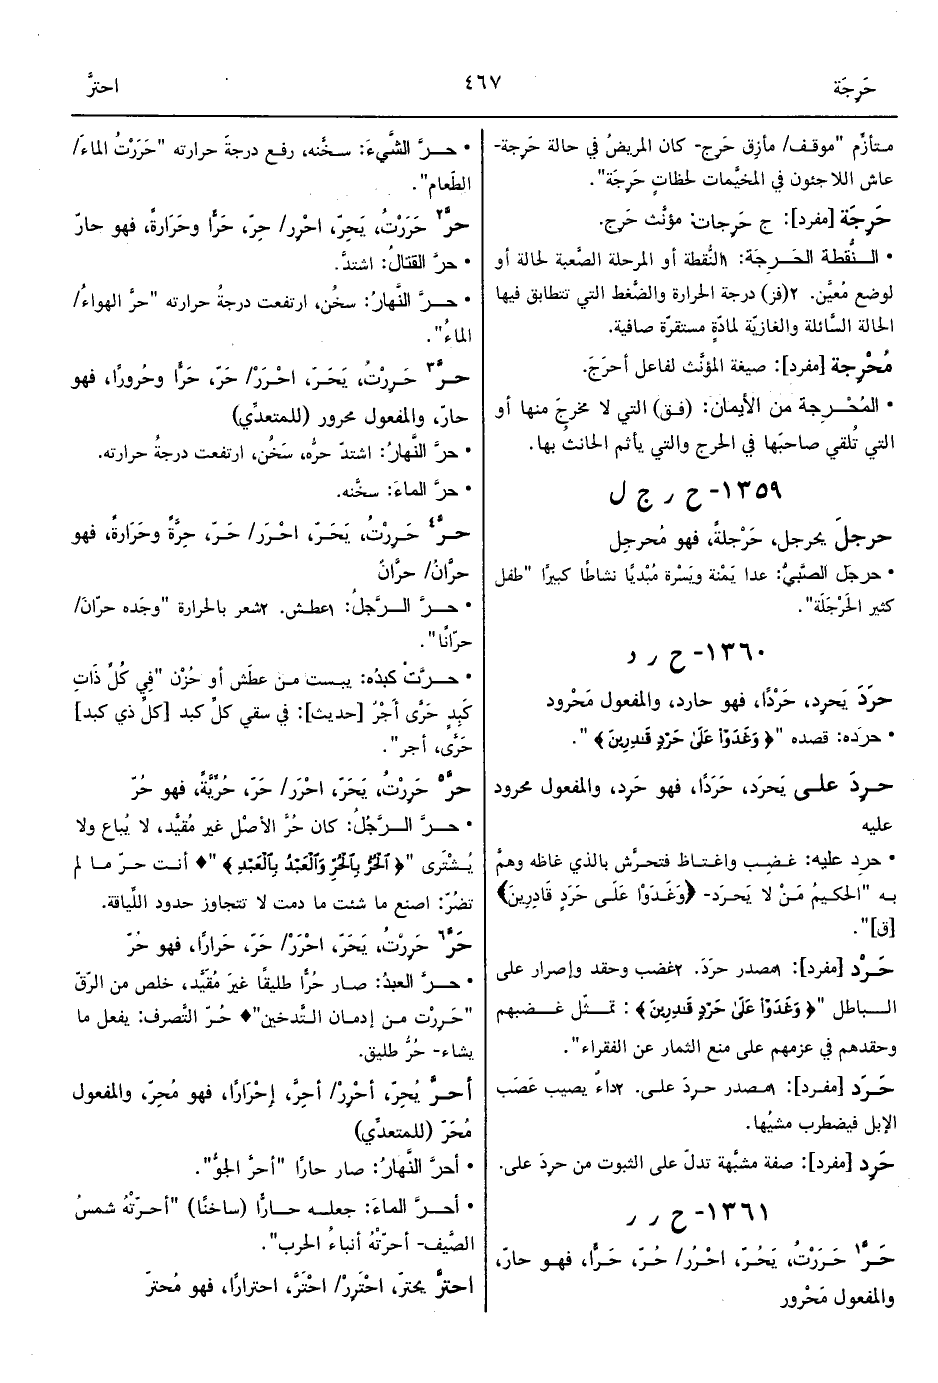 حَرِجَة
٤٦٧
احترَّ
متأزِّم "موقف/ مأزق حَرج- كان المريضُ في حالة حَرِجة-
عاش اللاجئون في المخيَّمات لحظاتٍ حَرِجَة".
حَرِجَة [مفرد]: ج حَرِجات: مؤنَّث حَرِج.
• النُّقطة الحَرِجَة: ١النُّقطة أو المرحلة الصَّعبة لحالة أو
لوضع مُعيَّن. ٢(فز) درجة الحرارة والضَّغط التي تتطابق فيها
الحالة السَّائلة والغازيَّة لمادّةٍ مستقرّة صافية.
مُحْرِجة [مفرد]: صيغة المؤنَّث لفاعل أحرَجَ.
• المُحْرِجة من الأيمان: (فق) التي لا مخرجَ منها أو
التي تُلقي صاحبَها في الحرج والتي يأثم الحانثُ بها.
١٣٥٩- ح ر ج ل
حرجلَ يحرجل، حَرْجلةً، فهو مُحرجِل
• حرجَل الصَّبيُّ: عدا يَمْنة ويَسْرة مُبْديًا نشاطًا كبيرًا "طفل
كثير الحَرْجَلَة".
١٣٦٠- ح ر د
حرَدَ يَحرِد، حَرْدًا، فهو حارد، والمفعول مَحْرود
• حرَده: قصده "﴿ وَغَدَوْا عَلَىٰ حَرْدٍ قَٰدِرِينَ ﴾ ".
حرِدَ على يَحرَد، حَرَدًا، فهو حَرِد، والمفعول محرود
عليه
• حرِد عليه: غضِب واغتاظ فتحرَّش بالذي غاظه وهمَّ
به "الحكيمُ مَنْ لا يَحرَد- ﴿وَغَدَوْا عَلَى حَرَدٍ قَادِرِينَ﴾
[ق]".
حَرْد [مفرد]: ١مصدر حرَدَ. ٢غضب وحقد وإصرار على
الباطل "﴿ وَغَدَوْا عَلَىٰ حَرْدٍ قَٰدِرِينَ ﴾ : تمثّل غضبهم
وحقدهم في عزمهم على منع الثمار عن الفقراء".
حَرَد [مفرد]: ١مصدر حرِدَ على. ٢داءٌ يصيب عَصَب
الإبل فيضطرب مشيُها.
حَرِد [مفرد]: صفة مشبَّهة تدلّ على الثبوت من حرِدَ على.
١٣٦١- ح ر ر
حَرَّ١ حَرَرْتُ، يَحُرّ، احْرُر/ حُرّ، حَرًّا، فهو حارّ،
والمفعول مَحْرور
• حرَّ الشَّيءَ: سخَّنه، رفع درجةَ حرارته "حَرَرْتُ الماءَ/
الطَّعام".
حرَّ٢ حَرَرْتُ، يَحِرّ، احْرِر/ حِرّ، حَرًّا وحَرَارةً، فهو حارّ
• حرَّ القتالُ: اشتدَّ.
• حرَّ النَّهارُ: سخُن، ارتفعت درجةُ حرارته "حرَّ الهواءُ/
الماءُ".
حرَّ٣ حَرِرْتُ، يَحَرّ، احْرَرْ/ حَرّ، حَرًّا وحُرورًا، فهو
حارّ، والمفعول محرور (للمتعدِّي)
• حرَّ النَّهارُ: اشتدّ حرُّه، سَخُن، ارتفعت درجةُ حرارته.
• حرَّ الماءَ: سخَّنه.
حرَّ٤ حَرِرْتُ، يَحَرّ، احْرَر/ حَرّ، حِرَّةً وحَرَارةً، فهو
حرَّانُ/ حرَّانٌ
• حرَّ الرَّجلُ: ١عطش. ٢شعر بالحرارة "وجَده حرّانَ/
حرّانًا".
• حرَّتْ كبدُه: يبست من عطَش أو حُزْن "فِي كُلِّ ذَاتِ
كَبِدٍ حَرَّى أَجْرٌ [حديث]: في سقي كلّ كبد [كلّ ذي كبد]
حَرَّى، أجر".
حرَّ٥ حَرِرْتُ، يَحَرّ، احْرَر/ حَرّ، حُرِّيَّةً، فهو حُرّ
• حرَّ الرَّجُلُ: كان حُرَّ الأصْلِ غير مُقيَّد، لا يُباع ولا
يُشْتَرى "﴿ ٱلْحُرُّ بِٱلْحُرِّ وَٱلْعَبْدُ بِٱلْعَبْدِ ﴾ "♦ أنت حرّ ما لم
تضُرّ: اصنع ما شئت ما دمت لا تتجاوز حدود اللِّياقة.
حَرَّ٦ حَرِرْتُ، يَحَرّ، احْرَرْ/ حَرّ، حَرارًا، فهو حُرّ
• حرَّ العبدُ: صار حُرًّا طليقًا غيرَ مُقيَّد، خلص من الرّقّ
"حَررت من إدمان التَّدخين"♦ حُرّ التَّصرف: يفعل ما
يشاء- حُرٌّ طليق.
أحرَّ يُحِرّ، أحْرِرْ/ أحِرَّ، إحْرَارًا، فهو مُحِرّ، والمفعول
مُحَرّ (للمتعدِّي)
• أحرَّ النَّهارُ: صار حارًا "أحرَّ الجوُّ".
• أحرَّ الماءَ: جعله حارًّا (ساخنًا) "أحرّتْهُ شمسُ
الصَّيف- أحرّتْهُ أنباءُ الحرب".
احترَّ يحترّ، احْتَرِرْ/ احْتَرَّ، احترارًا، فهو مُحترّ